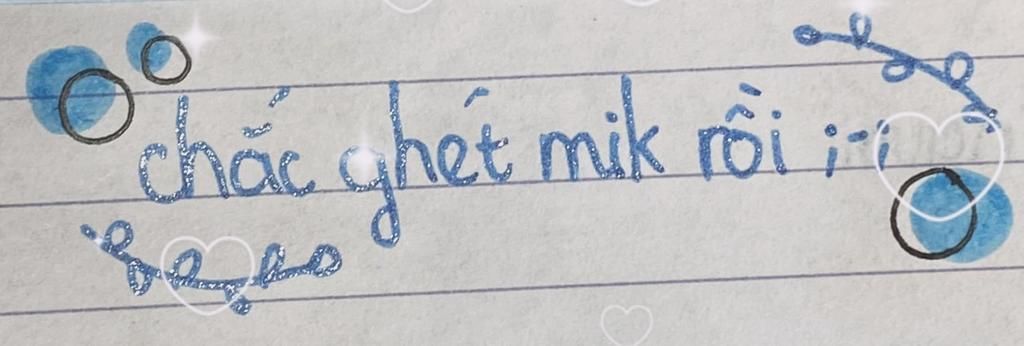 chắc ghét mik rồi ;-;